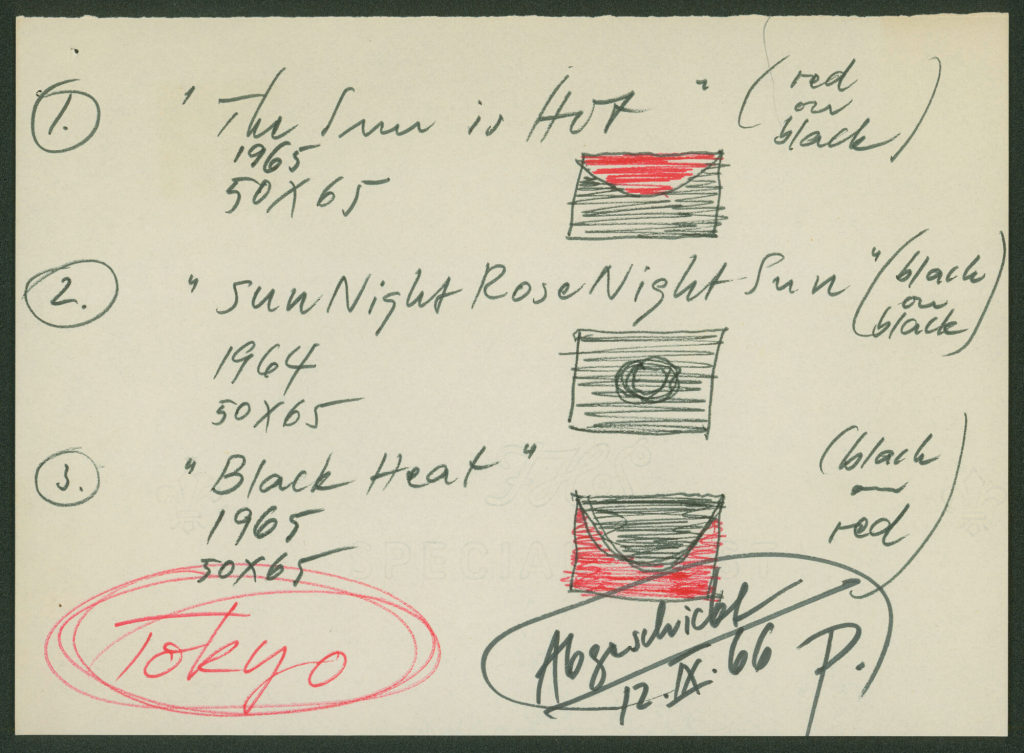 1. "The Sun is Hot" (red
on
black)
1965
50X65
2. "Sun Night Rose Night Sun" (black
on
black)
1964
50X65
3. "Black Heat" (black
—
red)
1965
50X65
Tokyo
Abgeschickt
12.IX.66 P.